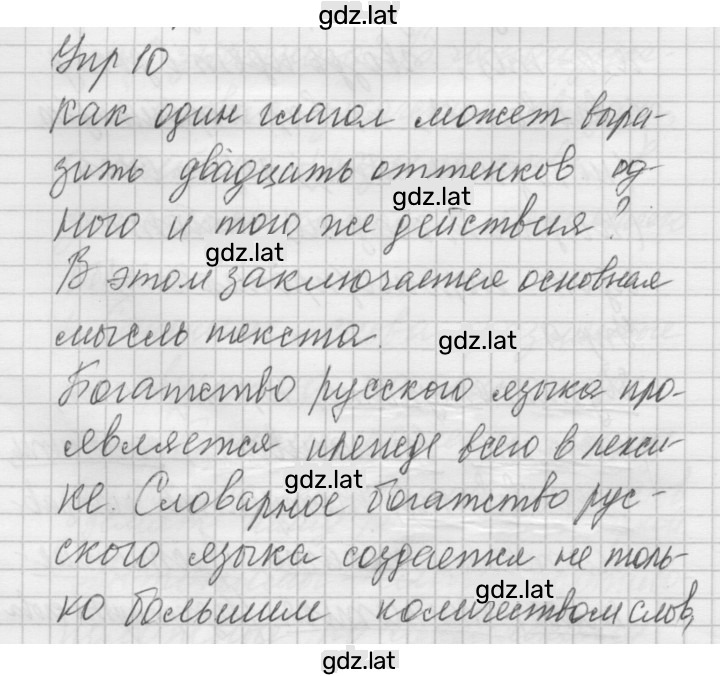 gdz.lat
Упр 10
как один глагол может выра-
зить двадцать оттенков од-
gdz.lat
ного и того же действия?
gdz.lat
В этом заключается основная
мысль текста.
gdz.lat
Богатство русского языка про-
является прежде всего в лекси-
gdz.lat
ке. Словарное богатство рус-
ского языка создается не толь-
gdz.lat
ко большим количеством слов,
gdz.lat